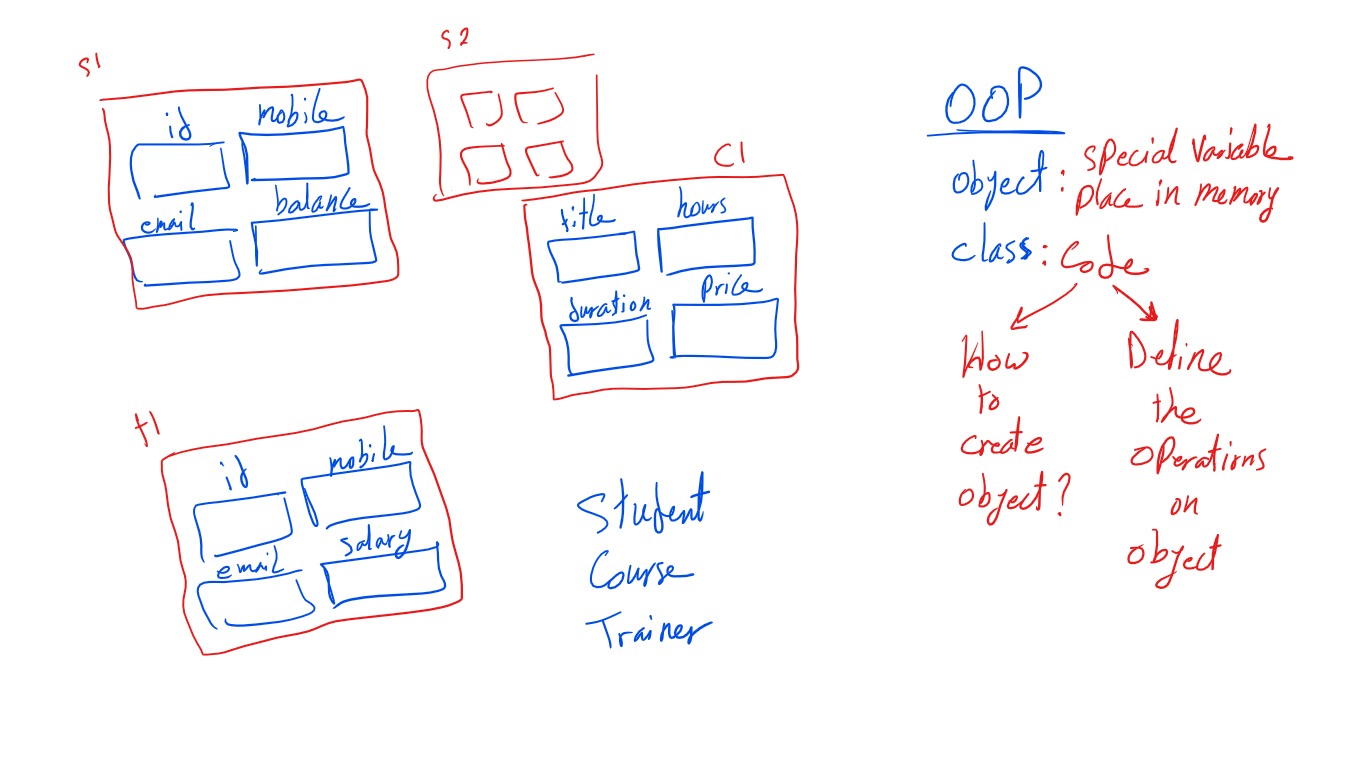 S1
id
mobile
email
balance
S2
C1
title
hours
duration
Price
t1
id
mobile
email
salary
Student
Course
Trainer
OOP
object : special Variable
Place in memory
class : Code
How
to
create
object ?
Define
the
Operations
on
object